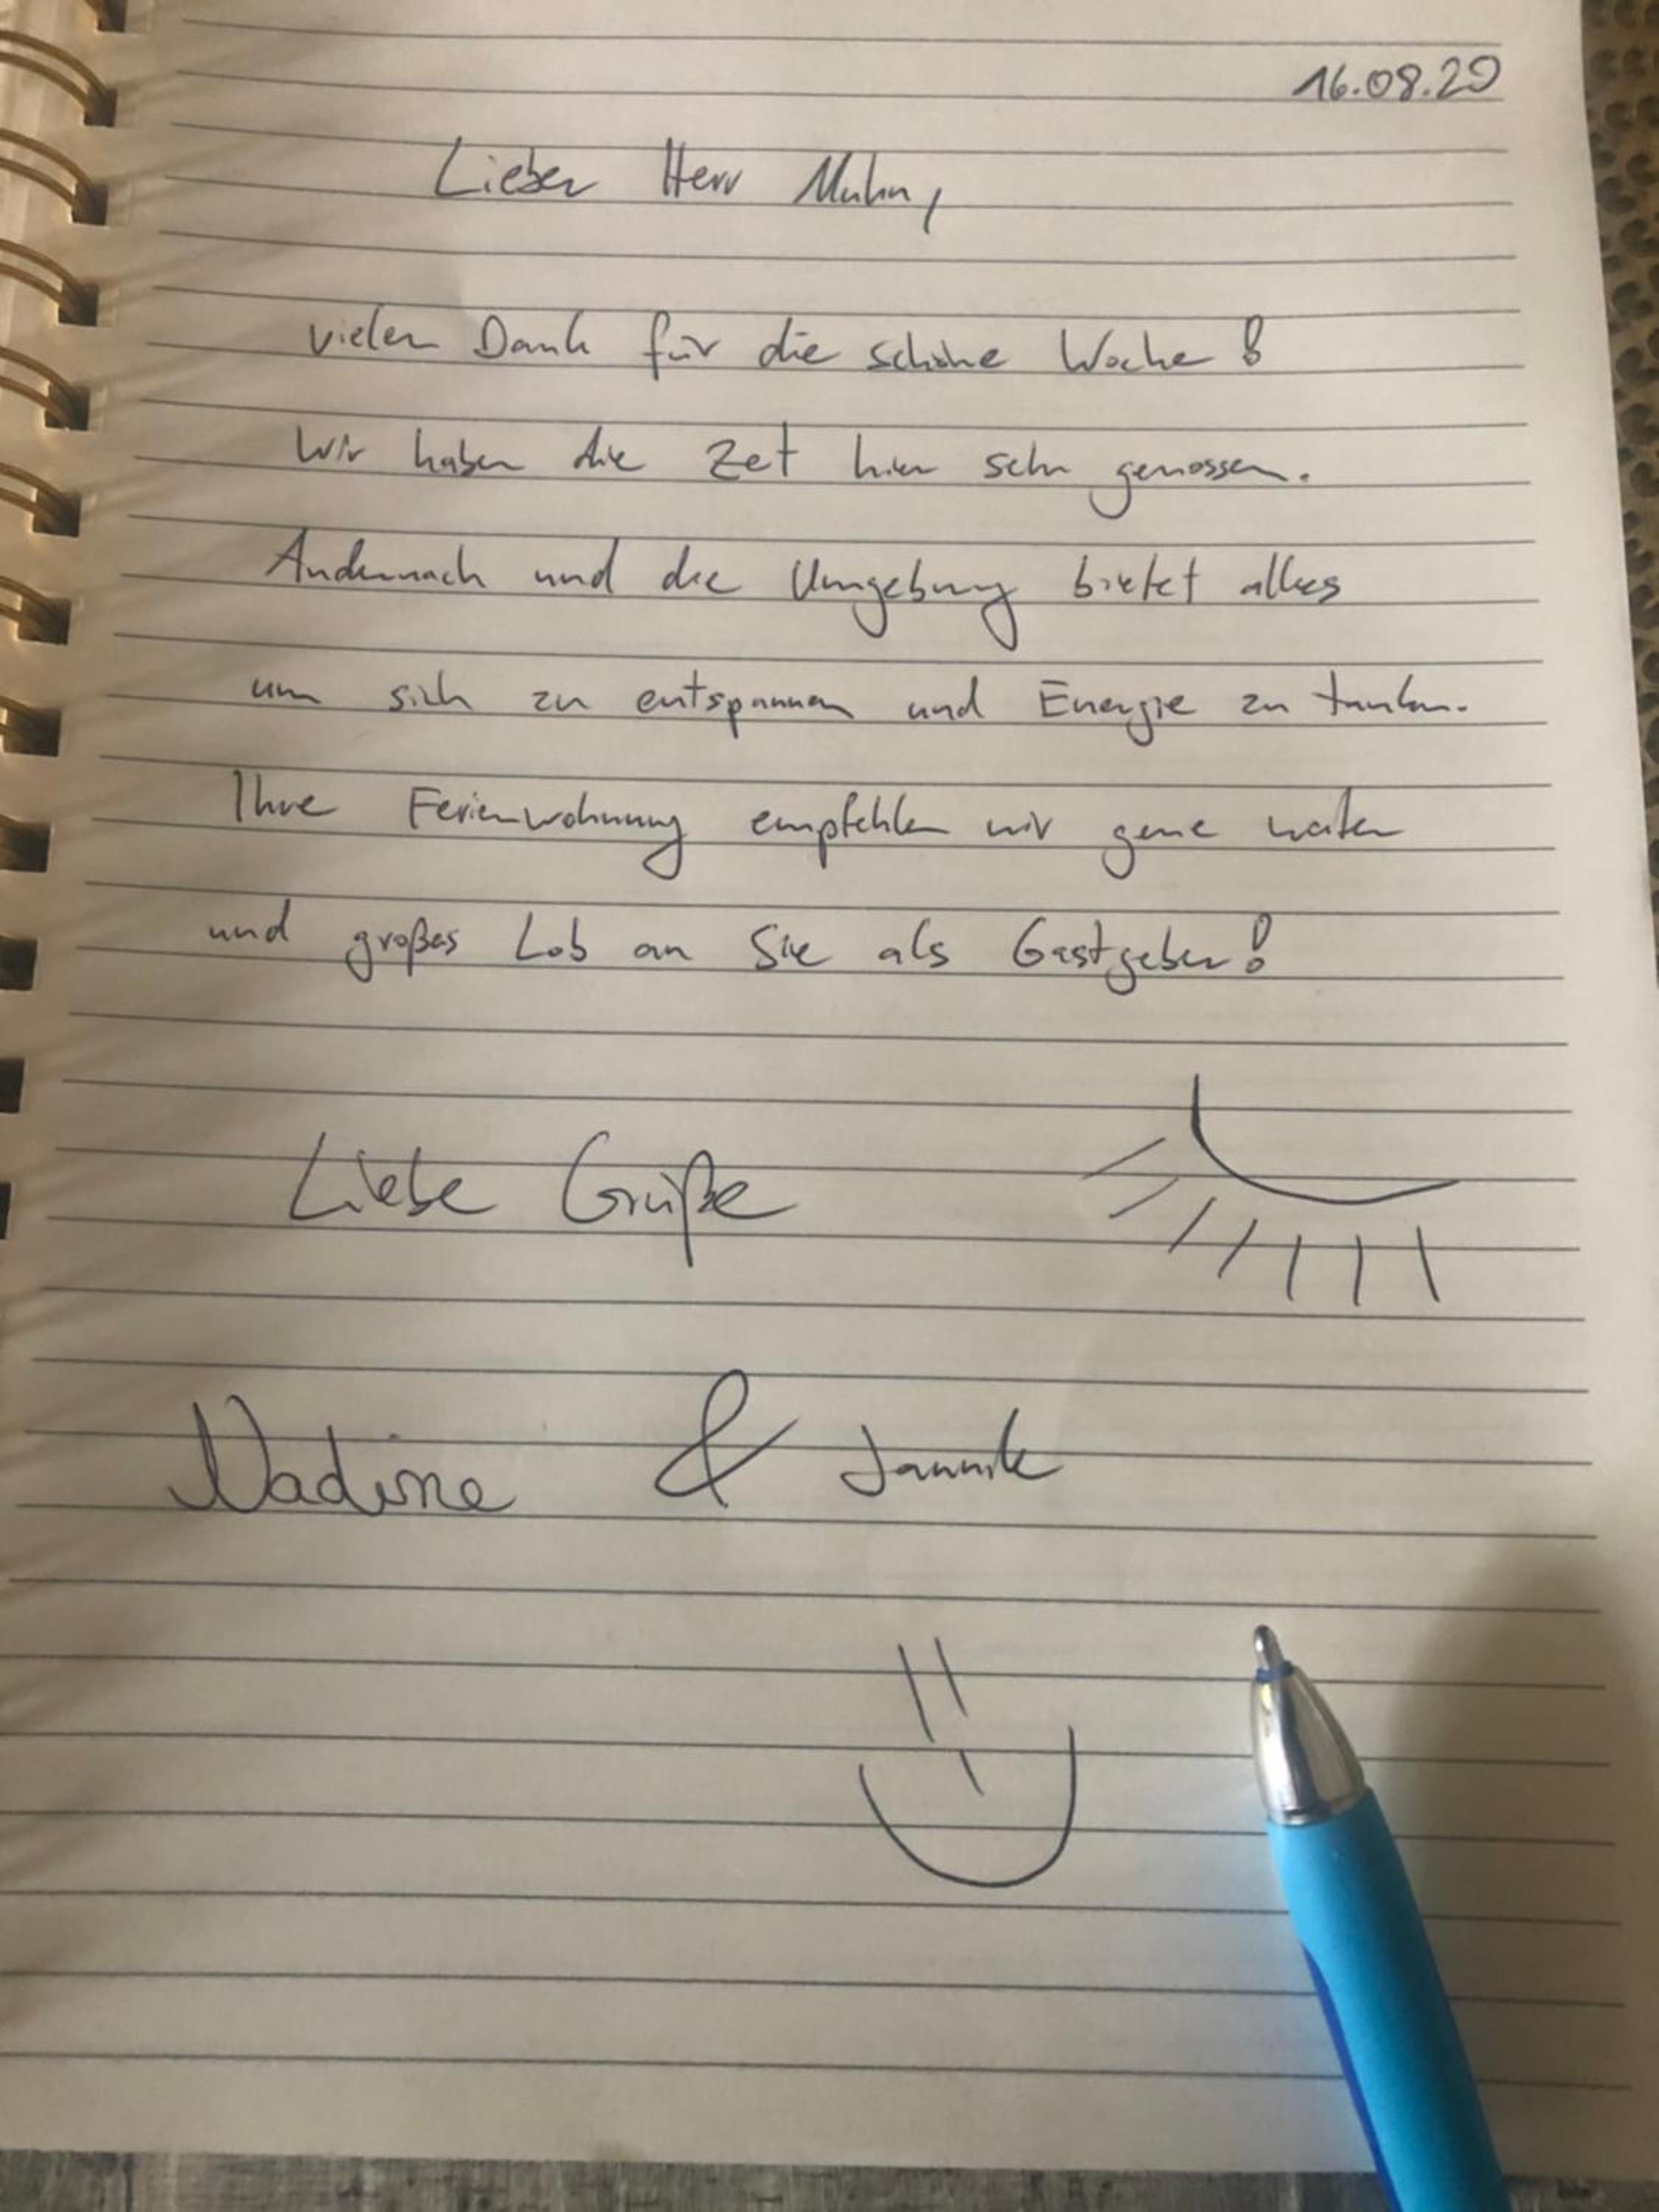 16.08.20
Lieber Herr
vielen Dank für die schöne Woche!
Wir haben die Zeit hier sehr genossen.
Andernach und die Umgebung bietet alles
um sich zu entspannen und Energie zu tanken.
Ihre Ferienwohnung empfehlen wir gerne weiter
und großes Lob an Sie als Gastgeber!
Liebe Grüße
Nadine & Jannik